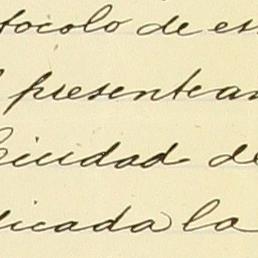 tocolo de es
presentean
Ciudad de
licada la